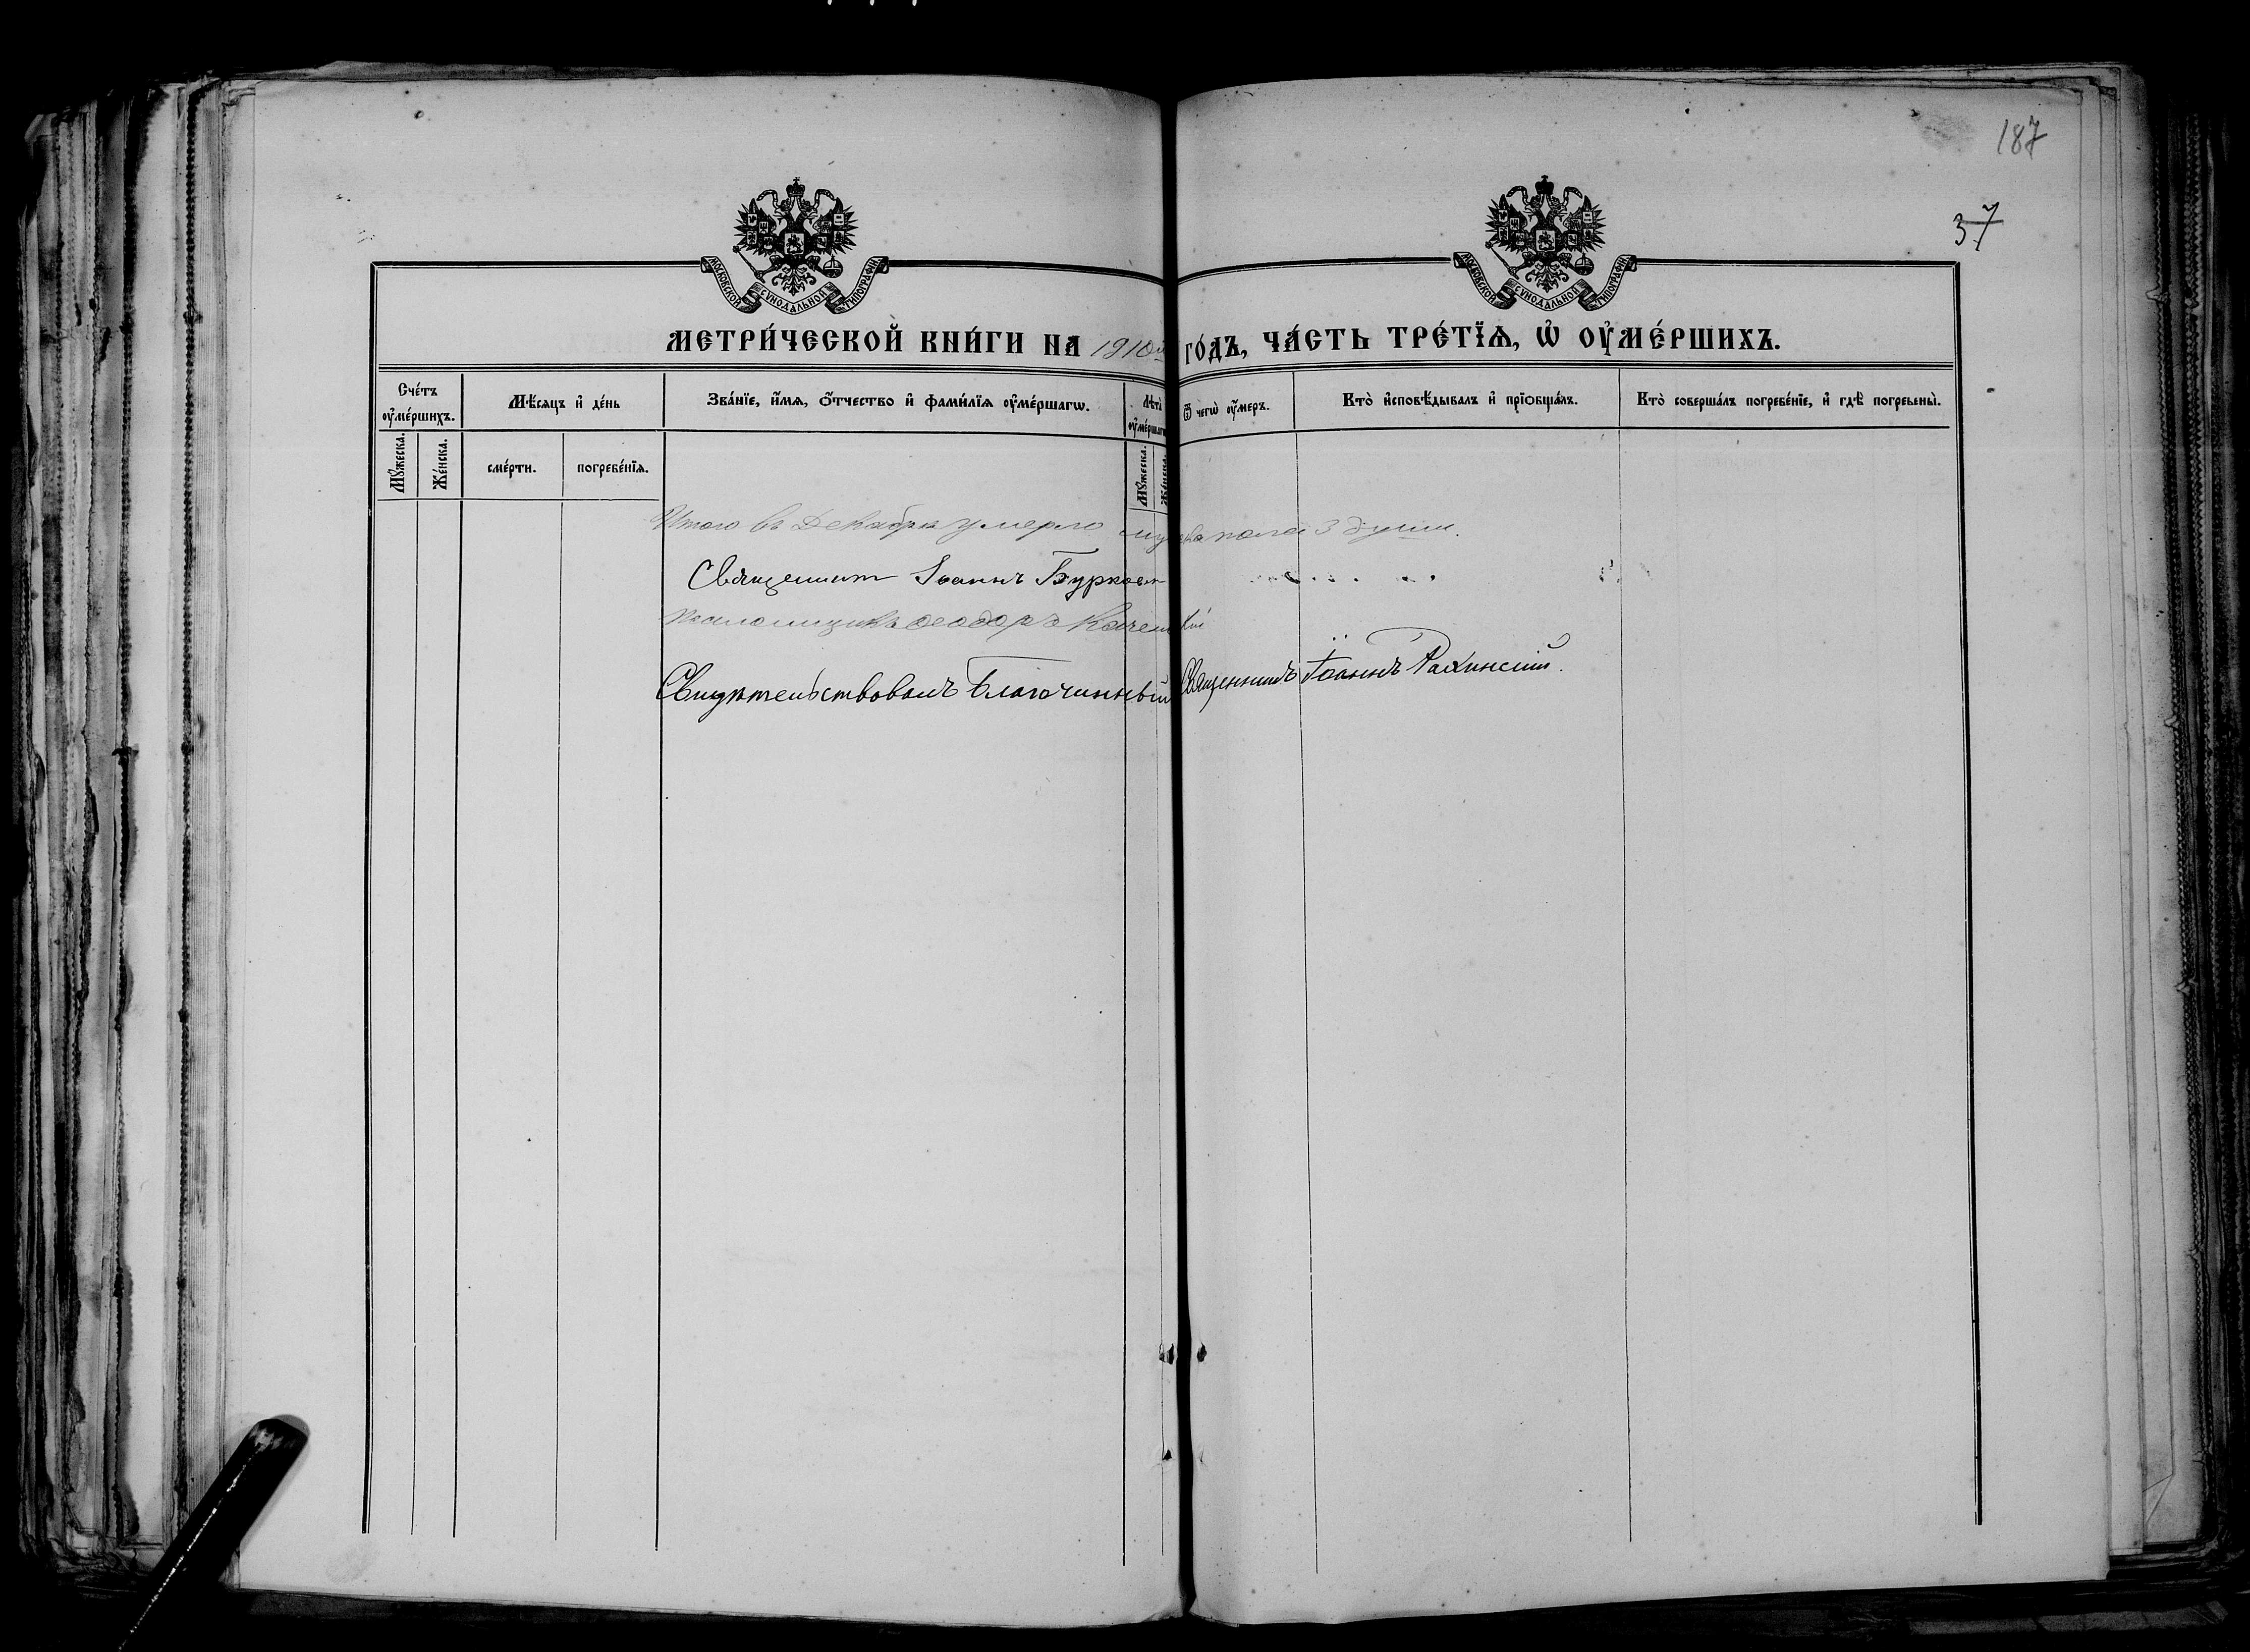 187
37
МОСКОВСКОЙ СѴНОДАЛЬНОЙ ТИПОГРАФІИ
МОСКОВСКОЙ СѴНОДАЛЬНОЙ ТИПОГРАФІИ
МЕТРИ́ЧЕСКОЙ КНИ́ГИ НА 1910й ГО́ДЪ, ЧА́СТЬ ТРЕ́ТЇѦ, Ѡ҆ ОУ҆МЕ́РШИХЪ.
Сче́тъ оу҆ме́ршихъ.
Мѣ́сяцъ и҆ де́нь
Зва́нїе, и҆́мѧ, ѻ҆́тчество и҆ фами́лїѧ оу҆ме́ршагѡ.
Лѣ́та оу҆ме́ршагѡ
Ѿ чегѡ̀ оу҆́меръ.
Кто̀ и҆сповѣ́дывалъ и҆ прїѡбща́лъ.
Кто̀ соверша́лъ погребе́нїе, и҆ гдѣ̀ погребены̀.
Мꙋ́жеска.
Же́нска.
сме́рти.
погребе́нїѧ.
Мꙋ́жеска.
Же́нска.
Итого въ Декабрѣ умерло муж. пола 3 души.
Священник Іоаннъ
Псаломщикъ Ѳеодоръ
Свидѣтельствовалъ Благочинный Священникъ Іоаннъ